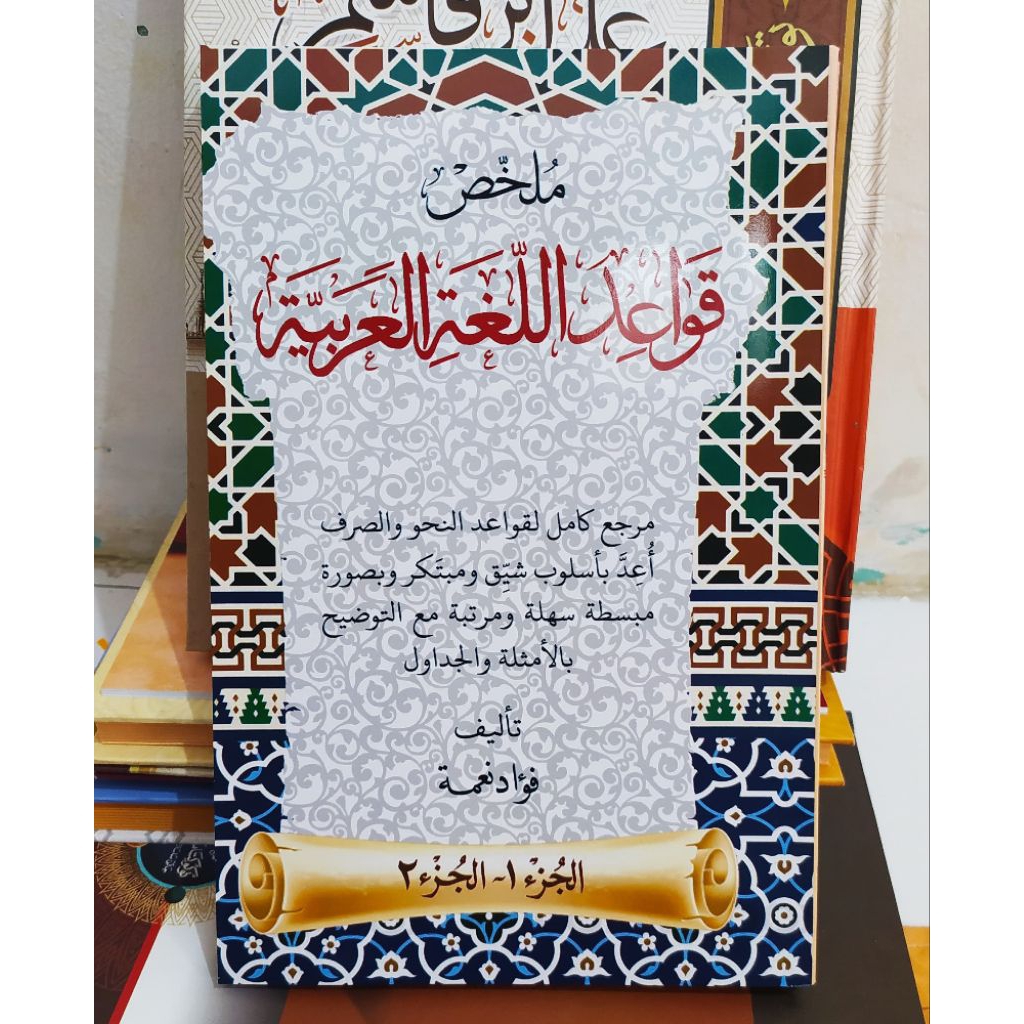 مُلخّص
قَوَاعِدَ اللّغَةِ العَرَبيَّة
مرجع كامل لقواعد النحو والصرف
أُعِدَّ بأسلوب شيِّق ومبتَكر وبصورة
مبسطة سهلة ومرتبة مع التوضيح
بالأمثلة والجداول
تأليف
فؤاد نعمة
الجُزْء ١ - الجُزْء ٢